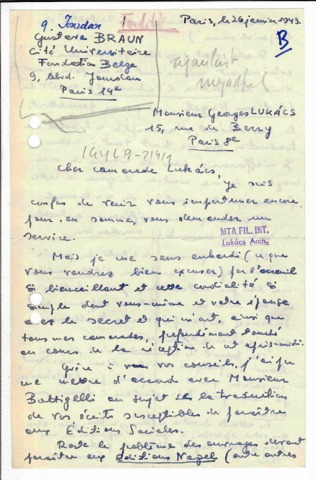 9. Jourdan
Gustave BRAUN
Cité Universitaire
Fondation Belge
9, blvd. Jourdan
Paris 14e
Paris, le 26 janvier 1949.
B
Monsieur Georges LUKÁCS
15, rue de Berry
Paris 8e
Cher camarade Lukács,
Je suis
confus de venir vous importuner encore,
pour, en somme, vous demander un
service.
MTA FIL. INT.
Lukács Arch.
Mais je me sens enhardi (ce que
vous voudrez bien excuser) par l'accueil
si bienveillant et cette cordialité si
simple dont vous-même et votre épouse
avez le secret et qui m'ont, ainsi que
tous mes camarades, profondément touché
au cours de la réception de cet après-midi.
Grâce à vos conseils, j'ai pu
me mettre d'accord avec Monsieur
Battigelli au sujet de la traduction
de vos écrits susceptibles de paraître
aux Éditions Sociales.
Reste le problème des ouvrages devant
paraître aux Éditions Nagel (entre autres